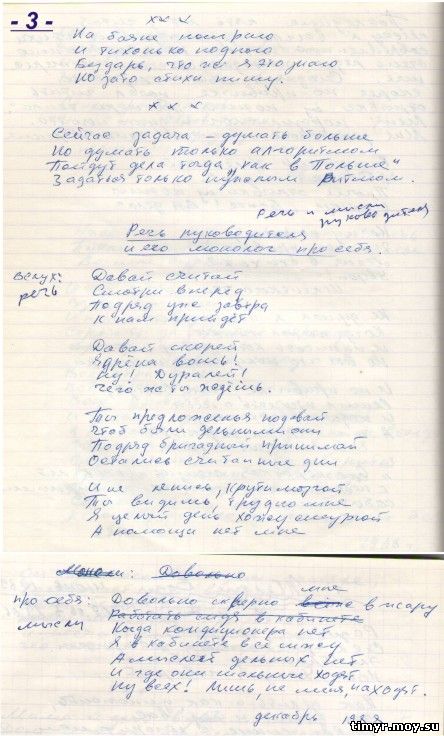 - 3 -
х х х
На баяне поиграю
И тихонько подпою
Бездарь, что же я это знаю
Но зато стихи пишу.
х х х
Сейчас задача – думать больше
Но думать только алгоритмом
Пойдут дела тогда, „как в Польше"
Задаться только нужным ритмом.
Речь и мысли
руководителя
Речь руководителя
и его монолог про себя.
Вслух:
речь
Давай считай
Смотри вперёд
Подряд уже завтра
К нам придёт
Давай скорей
Ядрёна вошь!
Ну! Дуралей!
Чего же ты ждёшь.
Ты предложенья подавай
Чтоб были дельными они
Подряд бригадный принимай
Остались считанные дни
И не ленись, крути мозгой
Ты видишь, трудно мне
Я целый день хожу
А помощи нет мне
Довольно
про себя:
мысли
Довольно скверно мне в жару
Работать сидя в кабинете
Когда кондиционера нет
Я в кабинете всё сижу
А мыслей дельных нет
И где они шальные ходят
Ну всех! Лишь, не меня, находят.
декабрь 1988
timyr.moy.su